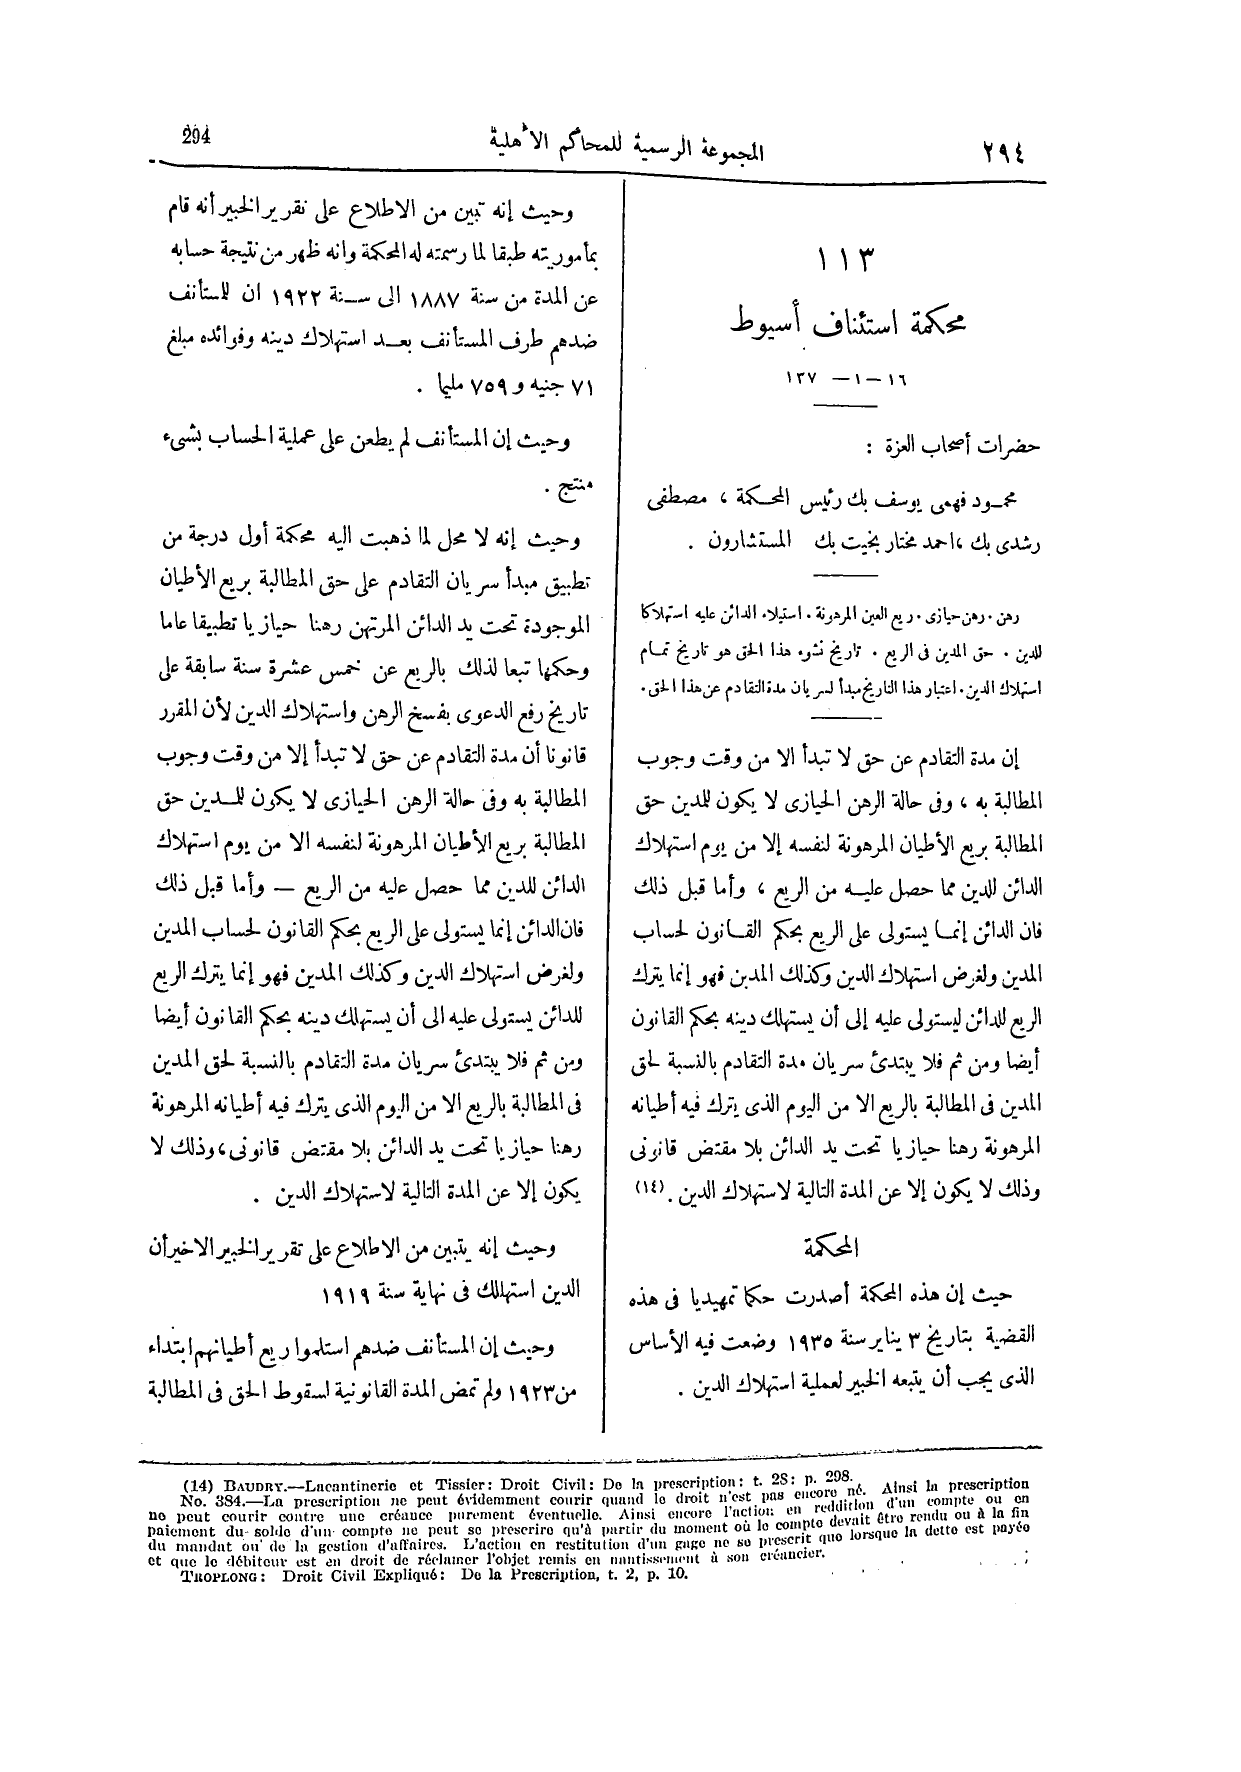 ٢٩٤
المجموعة الرسمية للمحاكم الأهلية
294
١١٣
محكمة استئناف أسيوط
١٦ – ١ – ١٣٧
حضرات أصحاب العزة :
محمود فهمى يوسف بك رئيس المحكمة ، مصطفى
رشدى بك ،احمد مختار بخيت بك المستشارون .
رهن . رهن حيازى . ريع العين المرهونة . استيلاء الدائن عليه استهلاكا
للدين . حق المدين فى الريع . تاريخ نشوء هذا الحق هو تاريخ تمام
استهلاك الدين . اعتبار هذا التاريخ مبدأ لسريان مدة التقادم عن هذا الحق .
إن مدة التقادم عن حق لا تبدأ الا من وقت وجوب
المطالبة به ، وفى حالة الرهن الحيازى لا يكون للمدين حق
المطالبة بريع الأطيان المرهونة لنفسه إلا من يوم استهلاك
الدائن للدين مما حصل عليه من الريع ، وأما قبل ذلك
فان الدائن إنما يستولى على الريع بحكم القانون لحساب
المدين ولغرض استهلاك الدين وكذلك المدين فهو إنما يترك
الريع للدائن ليستولى عليه إلى أن يستهلك دينه بحكم القانون
أيضا ومن ثم فلا يبتدئ سريان مدة التقادم بالنسبة لحق
المدين فى المطالبة بالريع الا من اليوم الذى يترك فيه أطيانه
المرهونة رهنا حيازيا تحت يد الدائن بلا مقتض قانونى
وذلك لا يكون إلا عن المدة التالية لاستهلاك الدين . (١٤)
المحكمة
حيث إن هذه المحكمة أصدرت حكما تمهيديا فى هذه
القضية بتاريخ ٣ يناير سنة ١٩٣٥ وضعت فيه الأساس
الذى يجب أن يتبعه الخبير لعملية استهلاك الدين .
وحيث إنه تبين من الاطلاع على تقرير الخبير أنه قام
بمأموريته طبقا لما رسمته له المحكمة وانه ظهر من نتيجة حسابه
عن المدة من سنة ١٨٨٧ الى سنة ١٩٢٢ ان للمستأنف
ضدهم طرف المستأنف بعد استهلاك دينه وفوائده مبلغ
٧١ جنيه و ٧٥٩ مليما .
وحيث إن المستأنف لم يطعن على عملية الحساب بشىء
منتج .
وحيث إنه لا محل لما ذهبت اليه محكمة أول درجة من
تطبيق مبدأ سريان التقادم على حق المطالبة بريع الأطيان
الموجودة تحت يد الدائن المرتهن رهنا حيازيا تطبيقا عاما
وحكمها تبعا لذلك بالريع عن خمس عشرة سنة سابقة على
تاريخ رفع الدعوى بفسخ الرهن واستهلاك الدين لأن المقرر
قانونا أن مدة التقادم عن حق لا تبدأ إلا من وقت وجوب
المطالبة به وفى حالة الرهن الحيازى لا يكون للمدين حق
المطالبة بريع الأطيان المرهونة لنفسه الا من يوم استهلاك
الدائن للدين مما حصل عليه من الريع — وأما قبل ذلك
فان الدائن إنما يستولى على الريع بحكم القانون لحساب المدين
ولغرض استهلاك الدين وكذلك المدين فهو إنما يترك الريع
للدائن يستولى عليه الى أن يستهلك دينه بحكم القانون أيضا
ومن ثم فلا يبتدئ سريان مدة التقادم بالنسبة لحق المدين
فى المطالبة بالريع الا من اليوم الذى يترك فيه أطيانه المرهونة
رهنا حيازيا تحت يد الدائن بلا مقتض قانونى ، وذلك لا
يكون إلا عن المدة التالية لاستهلاك الدين .
وحيث إنه يتبين من الاطلاع على تقرير الخبير الاخير أن
الدين استهلك فى نهاية سنة ١٩١٩
وحيث إن المستأنف ضدهم استلموا ريع أطيانهم ابتداء
من ١٩٢٣ ولم تمض المدة القانونية لسقوط الحق فى المطالبة
(14) BAUDRY.—Lacantinerie et Tissier: Droit Civil: De la prescription: t. 28: p. 298.
No. 384.—La prescription ne peut évidemment courir quand le droit n'est pas encore né. Ainsi la prescription
ne peut courir contre une créance purement éventuelle. Ainsi encore l'action en reddition d'un compte ou en
paiement du solde d'un compte ne peut se prescrire qu'à partir du moment où le compte devait être rendu ou à la fin
du mandat ou de la gestion d'affaires. L'action en restitution d'un gage ne se prescrit que lorsque la dette est payée
et que le débiteur est en droit de réclamer l'objet remis en nantissement à son créancier.
TROPLONG: Droit Civil Expliqué: De la Prescription, t. 2, p. 10.